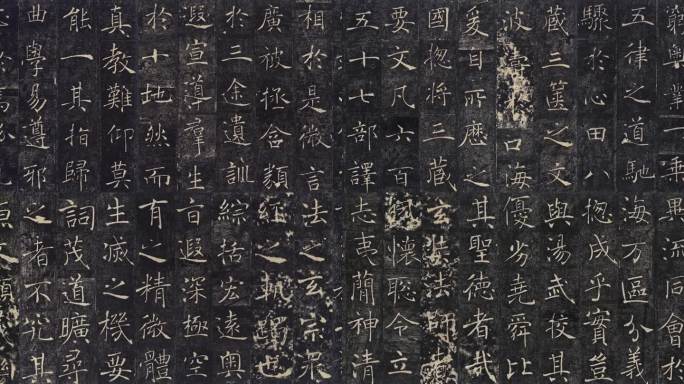 窮奧業一乘
五律之道馳
驟於心田八
藏三篋之文
波濤於口海
爰自所歷之
國揔將三藏
要文凡六百
五十七部譯
相於是微言
廣被拯含類
於三途遺訓
遐宣導羣生
於十地然而
真教難仰莫
能一其指歸
曲學易遵邪
異流同會於
海万區分義
揔成乎實豈
與湯武挍其
優劣堯舜比
其聖德者哉
玄奘法師者
夙懷聡令立
志夷蕳神清
法之玄宗衆
經之軌躅也
綜括宏遠奧
旨遐深極空
有之精微體
生滅之機要
詞茂道曠尋
之者不究其